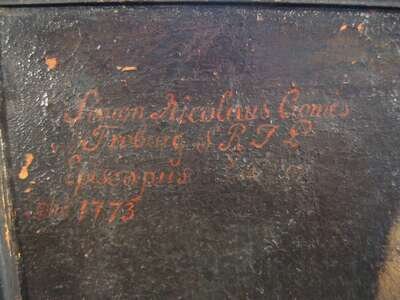 Simon Nicolaus Comes
Froberg S R I
Episcopus
1775